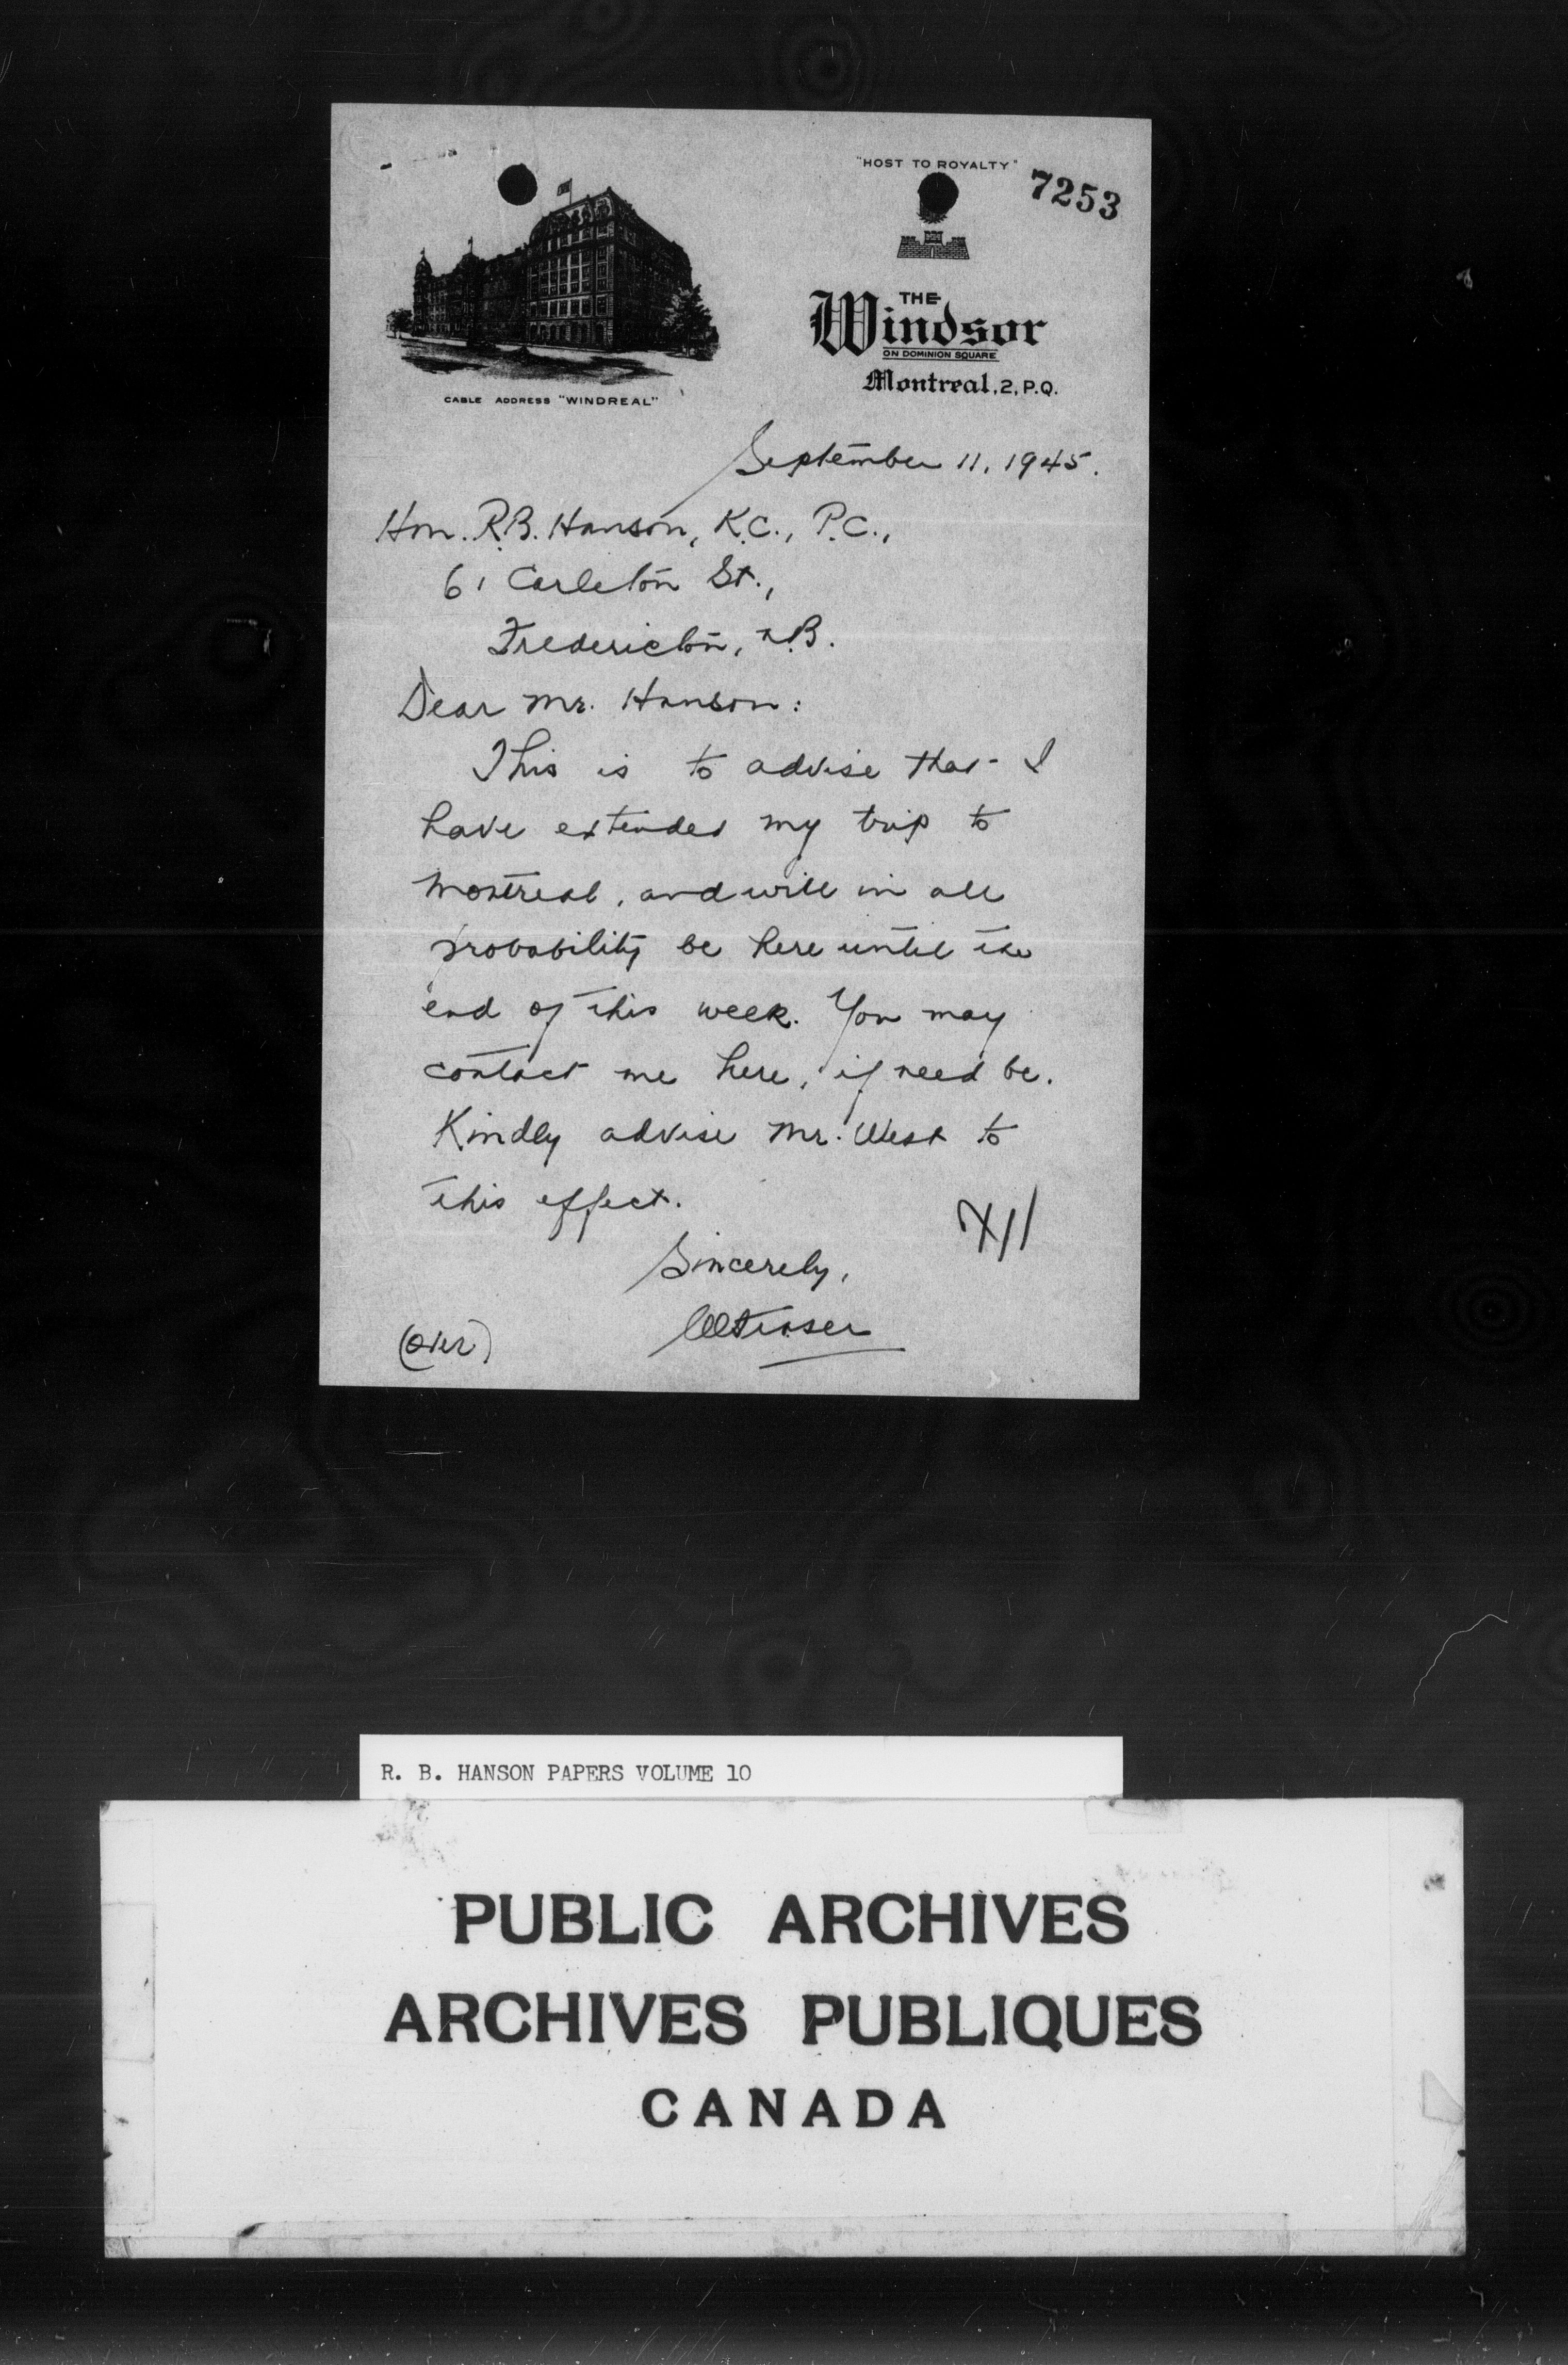 "HOST TO ROYALTY"
7253
THE
Windsor
ON DOMINION SQUARE
Montreal, 2, P.Q.
CABLE ADDRESS "WINDREAL"
September 11, 1945.
Hon. R.B. Hanson, K.C., P.C.,
61 Carleton St.,
Fredericton, N.B.
Dear Mr. Hanson:
This is to advise that I
have extended my trip to
Montreal, and will in all
probability be here until the
end of this week. You may
contact me here, if need be.
Kindly advise Mr. West to
this effect.
Sincerely,
Fraser
(over)
R. B. HANSON PAPERS VOLUME 10
PUBLIC ARCHIVES
ARCHIVES PUBLIQUES
CANADA